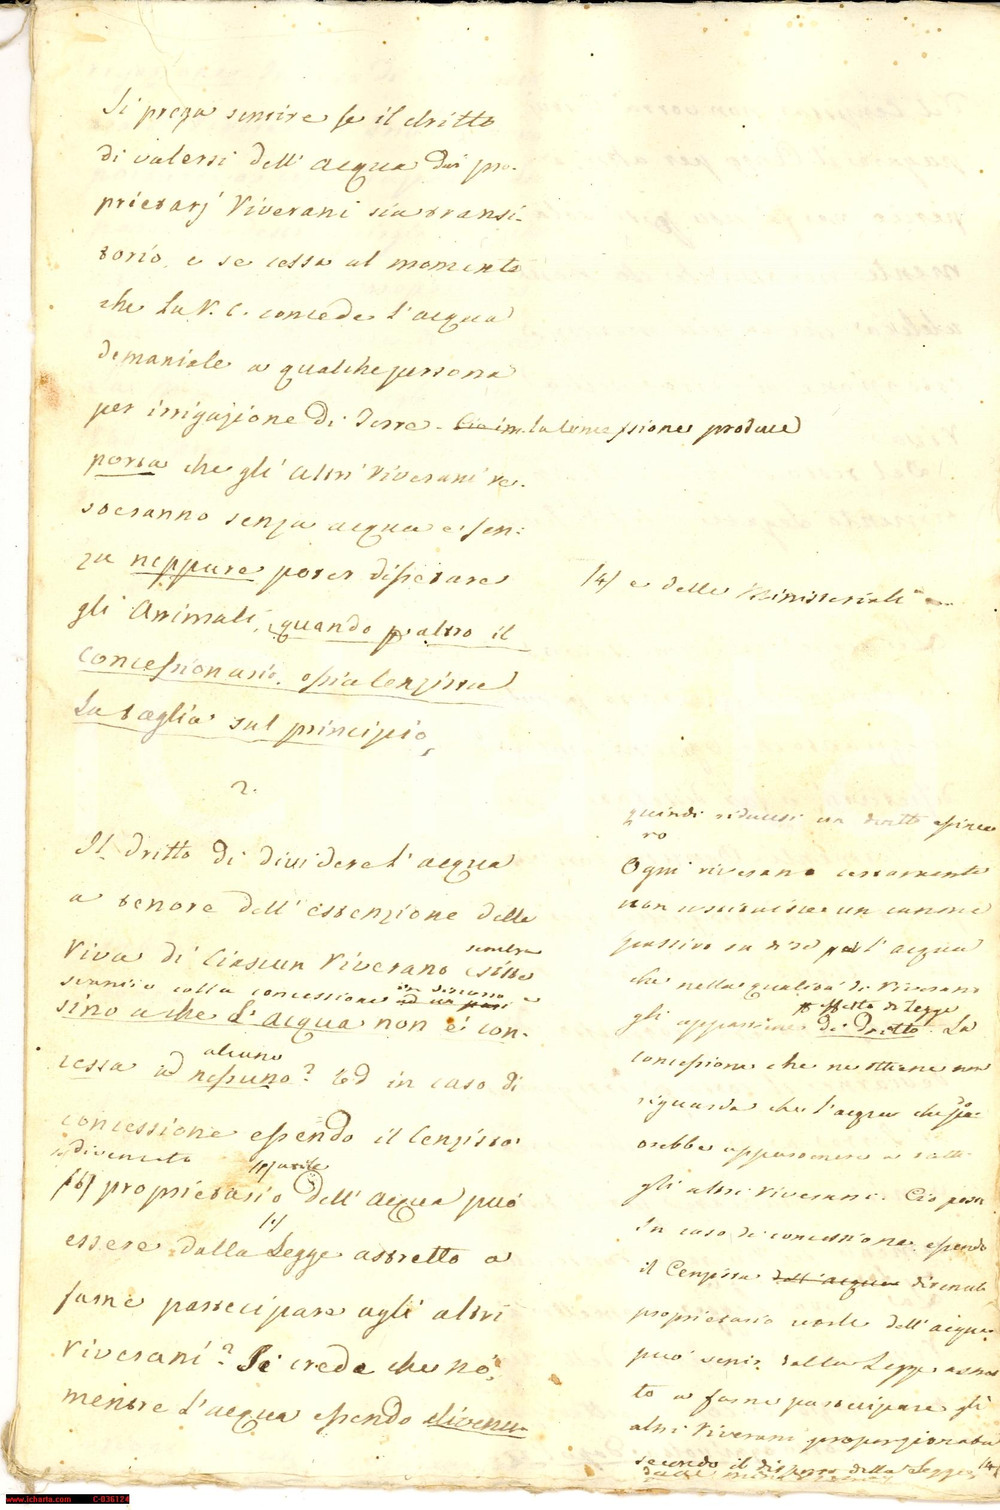 Si prega sentire se il dritto
di valersi dell' acqua dai pro-
prietarj Riverani sia transi-
torio, e se cessa al momento
che la R. C. concede l'acqua
demaniale a qualche persona
per irrigazione di Terre. la concessione produce
porta che gli altri Riverani re-
steranno senza acqua e sen-
za neppure poter dissetare
gli Animali, quando per altro il
Concessionario, ossia Censista
La taglia sul principio,
2.
Il dritto di dividere l'acqua
a tenore dell' estenzione delle
Riva di Ciascun Riverano esiste
sembra
svanito colla concessione
sino a che l'acqua non è con-
cessa ad nessuno? Ed in caso di
alcuno
concessione essendo il Censista
divenuto
proprietario dell' acqua può
utile
essere dalla Legge astretto a
farne partecipare agli altri
Riverani? Si crede che nò,
mentre l'acqua essendo divenu-
(4) e delle Ministeriali
quindi ridursi un diritto
ro
Ogni riverano certamente
non un canone
passivo l'acqua
che nella qualità di Riverano
effetto di Legge
gli appartiene di dritto. La
concessione che ne ottiene non
riguarda che l'acqua che
orebbe appartenere a tutti
gli altri Riverani. Ciò posto
In caso di concessione, essendo
il Censista dell' acqua divenuto
proprietario utile dell' acqua
può venir dalla Legge astret
to a farne partecipare gli
altri Riverani proporzionata
secondo il disposto della Legge (4)
www.icharta.com C-036124